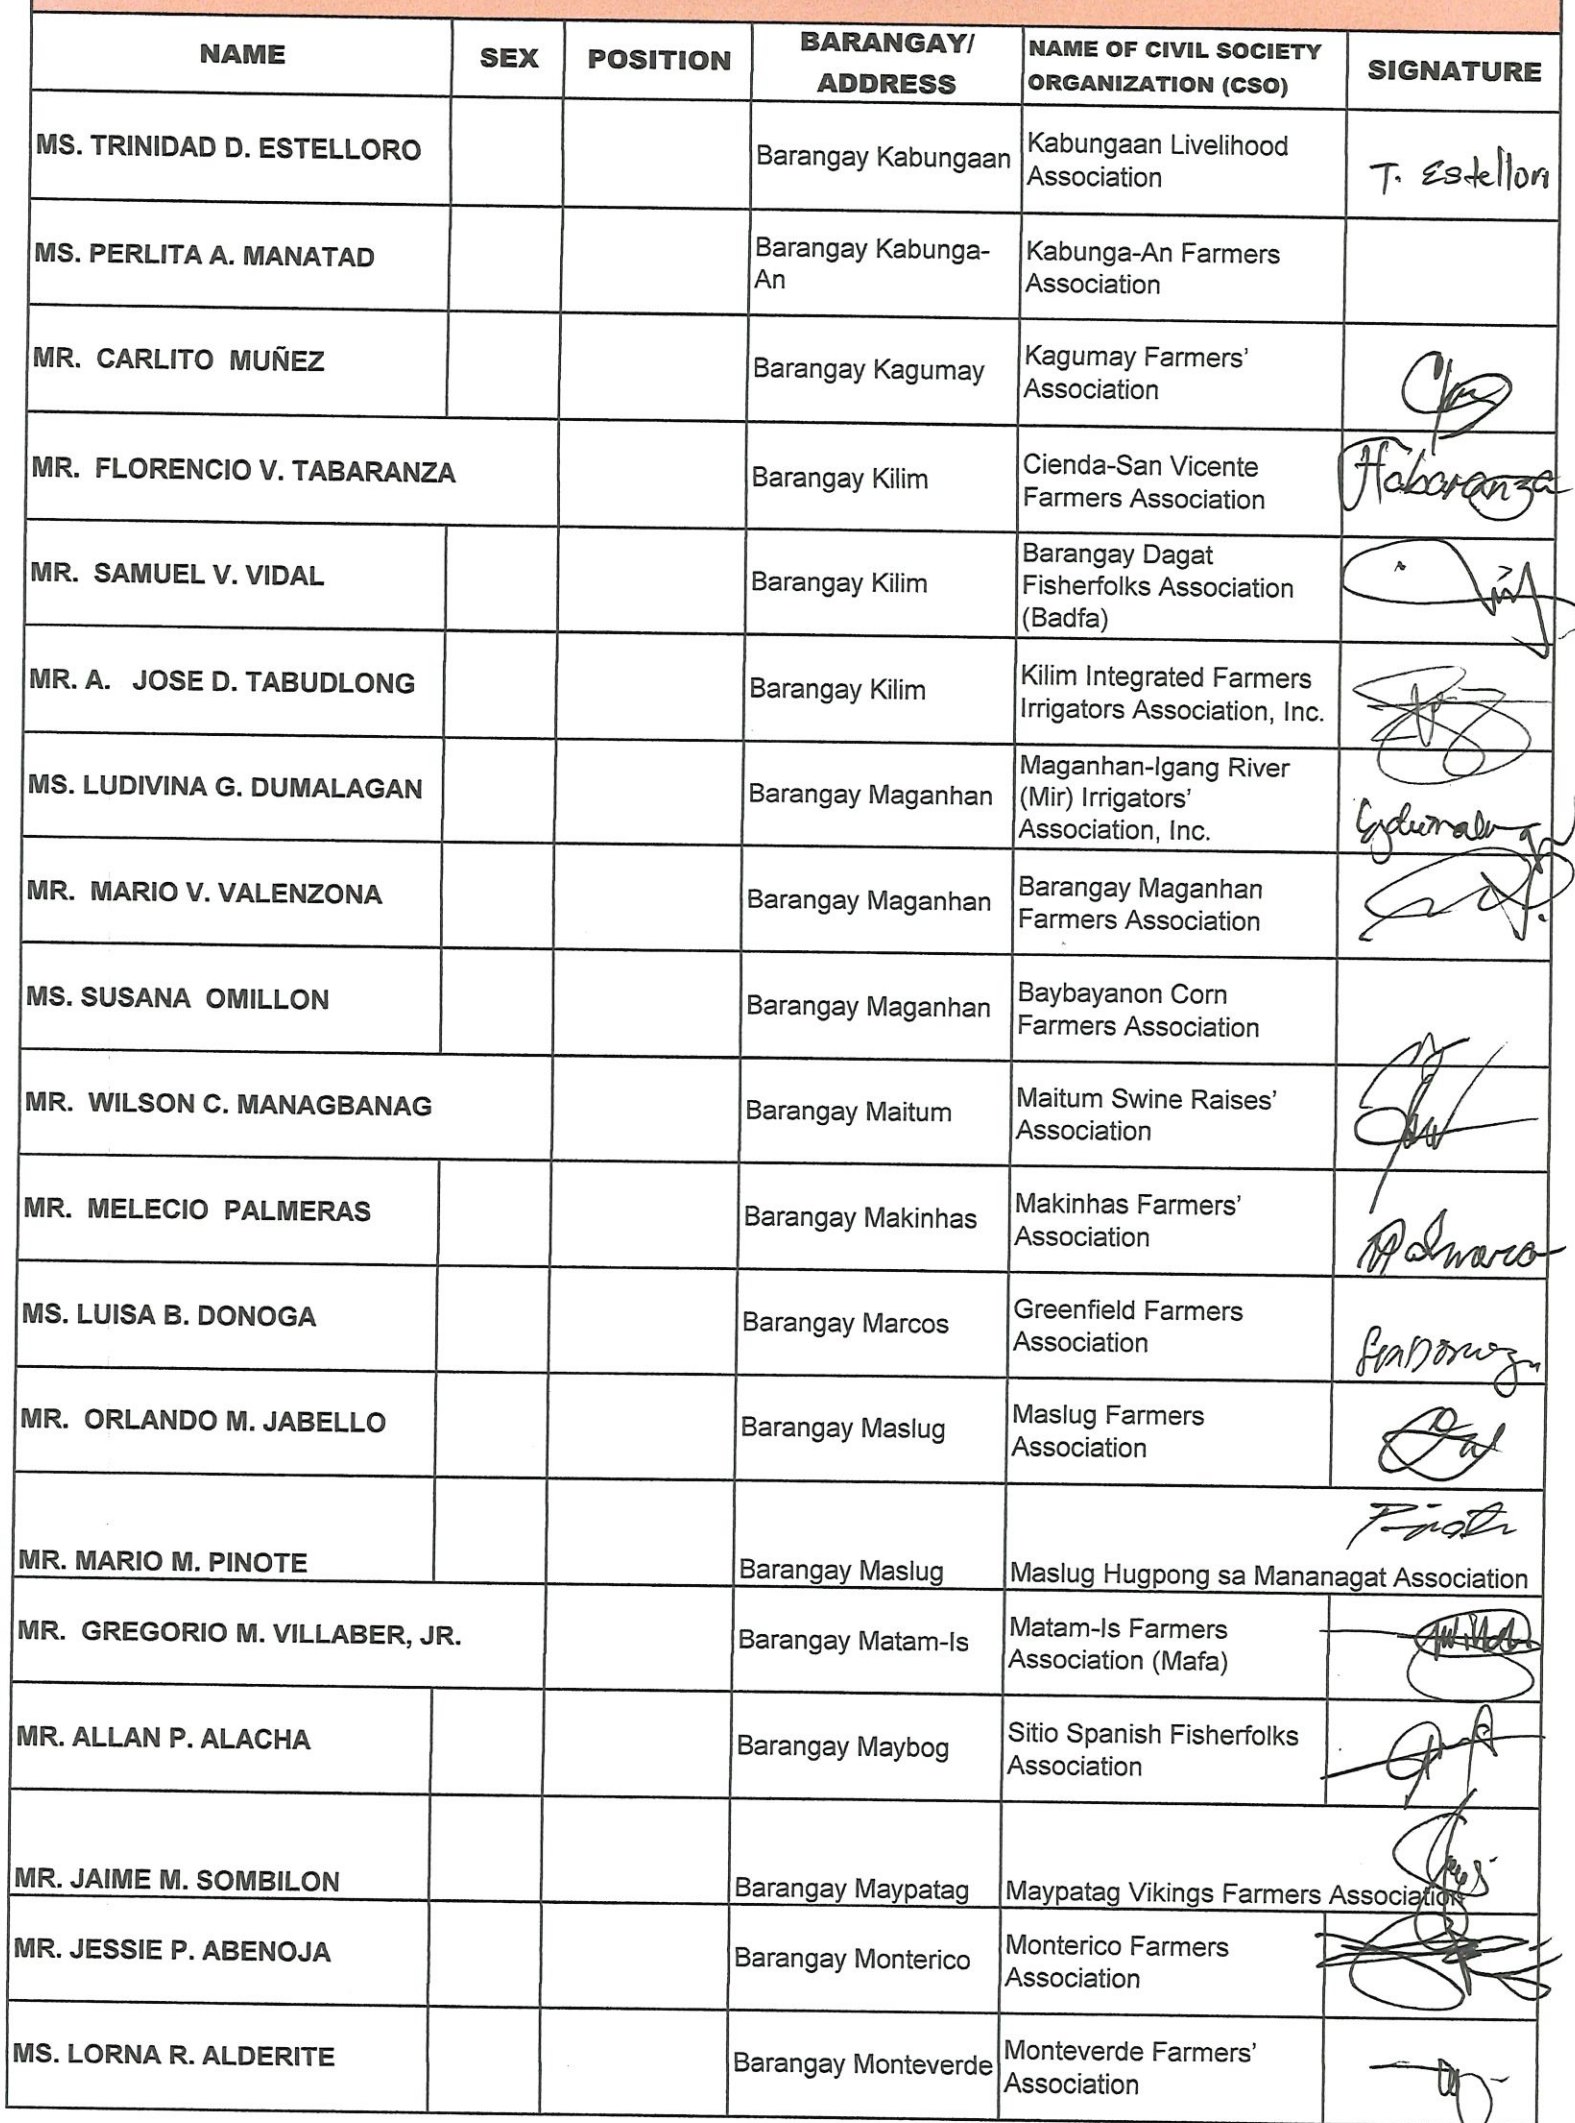 NAME
SEX
POSITION
BARANGAY/
ADDRESS
NAME OF CIVIL SOCIETY
ORGANIZATION (CSO)
SIGNATURE
MS. TRINIDAD D. ESTELLORO
Barangay Kabungaan
Kabungaan Livelihood
Association
T. Estellon
MS. PERLITA A. MANATAD
Barangay Kabunga-
An
Kabunga-An Farmers
Association
MR. CARLITO MUÑEZ
Barangay Kagumay
Kagumay Farmers’
Association
MR. FLORENCIO V. TABARANZA
Barangay Kilim
Cienda-San Vicente
Farmers Association
MR. SAMUEL V. VIDAL
Barangay Kilim
Barangay Dagat
Fisherfolks Association
(Badfa)
MR. A. JOSE D. TABUDLONG
Barangay Kilim
Kilim Integrated Farmers
Irrigators Association, Inc.
MS. LUDIVINA G. DUMALAGAN
Barangay Maganhan
Maganhan-Igang River
(Mir) Irrigators’
Association, Inc.
MR. MARIO V. VALENZONA
Barangay Maganhan
Barangay Maganhan
Farmers Association
MS. SUSANA OMILLON
Barangay Maganhan
Baybayanon Corn
Farmers Association
MR. WILSON C. MANAGBANAG
Barangay Maitum
Maitum Swine Raises’
Association
MR. MELECIO PALMERAS
Barangay Makinhas
Makinhas Farmers’
Association
MS. LUISA B. DONOGA
Barangay Marcos
Greenfield Farmers
Association
MR. ORLANDO M. JABELLO
Barangay Maslug
Maslug Farmers
Association
MR. MARIO M. PINOTE
Barangay Maslug
Maslug Hugpong sa Mananagat Association
MR. GREGORIO M. VILLABER, JR.
Barangay Matam-Is
Matam-Is Farmers
Association (Mafa)
MR. ALLAN P. ALACHA
Barangay Maybog
Sitio Spanish Fisherfolks
Association
MR. JAIME M. SOMBILON
Barangay Maypatag
Maypatag Vikings Farmers Association
MR. JESSIE P. ABENOJA
Barangay Monterico
Monterico Farmers
Association
MS. LORNA R. ALDERITE
Barangay Monteverde
Monteverde Farmers’
Association